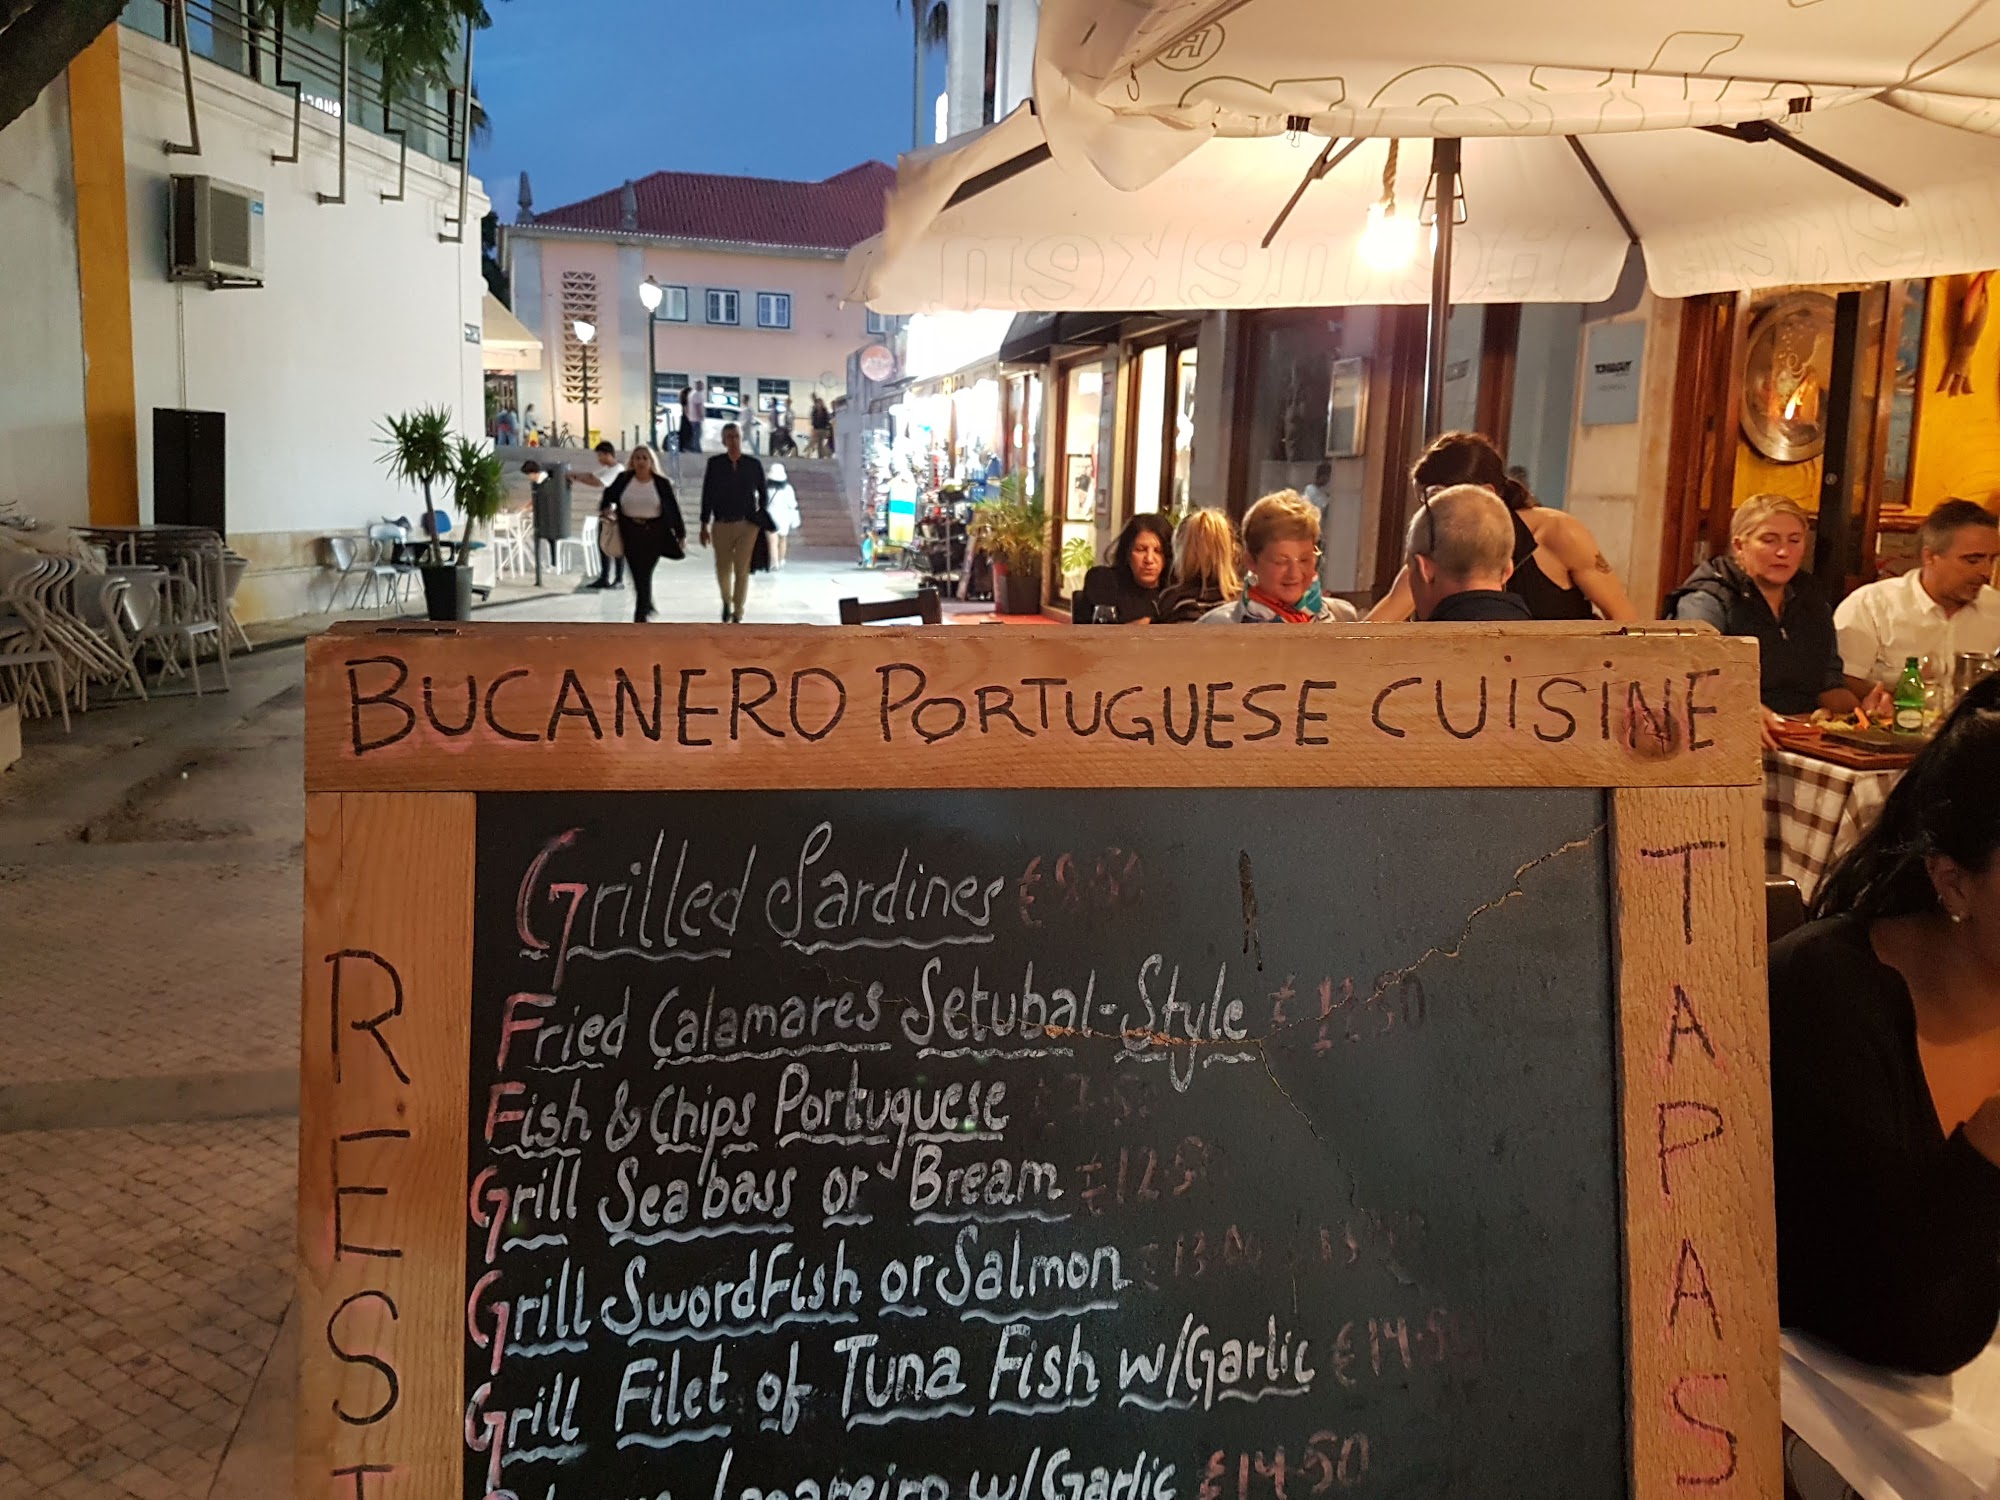 Heineken
BUCANERO PORTUGUESE CUISINE
REST
TAPAS
Grilled Sardines €9.50
Fried Calamares Setubal-Style € 12.50
Fish & Chips Portuguese €7.50
Grill Seabass or Bream €12.50
Grill Swordfish or Salmon €13.00
Grill Filet of Tuna Fish w/Garlic €14.50
w/Garlic €14.50